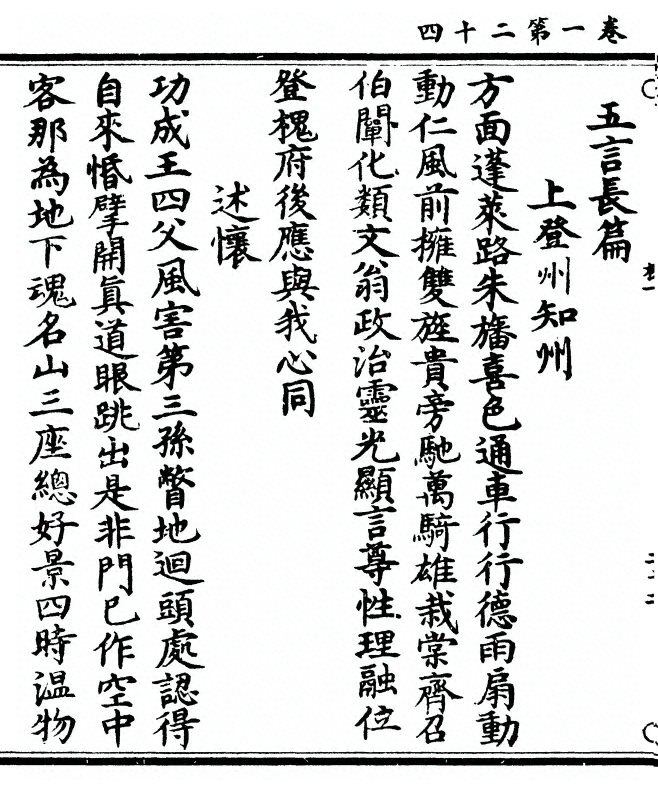 卷一第二十四
五言長篇
上登州知州
方面蓬萊路朱旛喜色通車行行德雨扇動
動仁風前擁雙旌貴旁馳萬騎雄栽棠齊召
伯闡化類文翁政治靈光顯言尊性理融位
登槐府後應與我心同
述懷
功成王四父風害第三孫瞥地迴頭處認得
自來惛擘開眞道眼跳出是非門已作空中
客那為地下魂名山三座總好景四時溫物